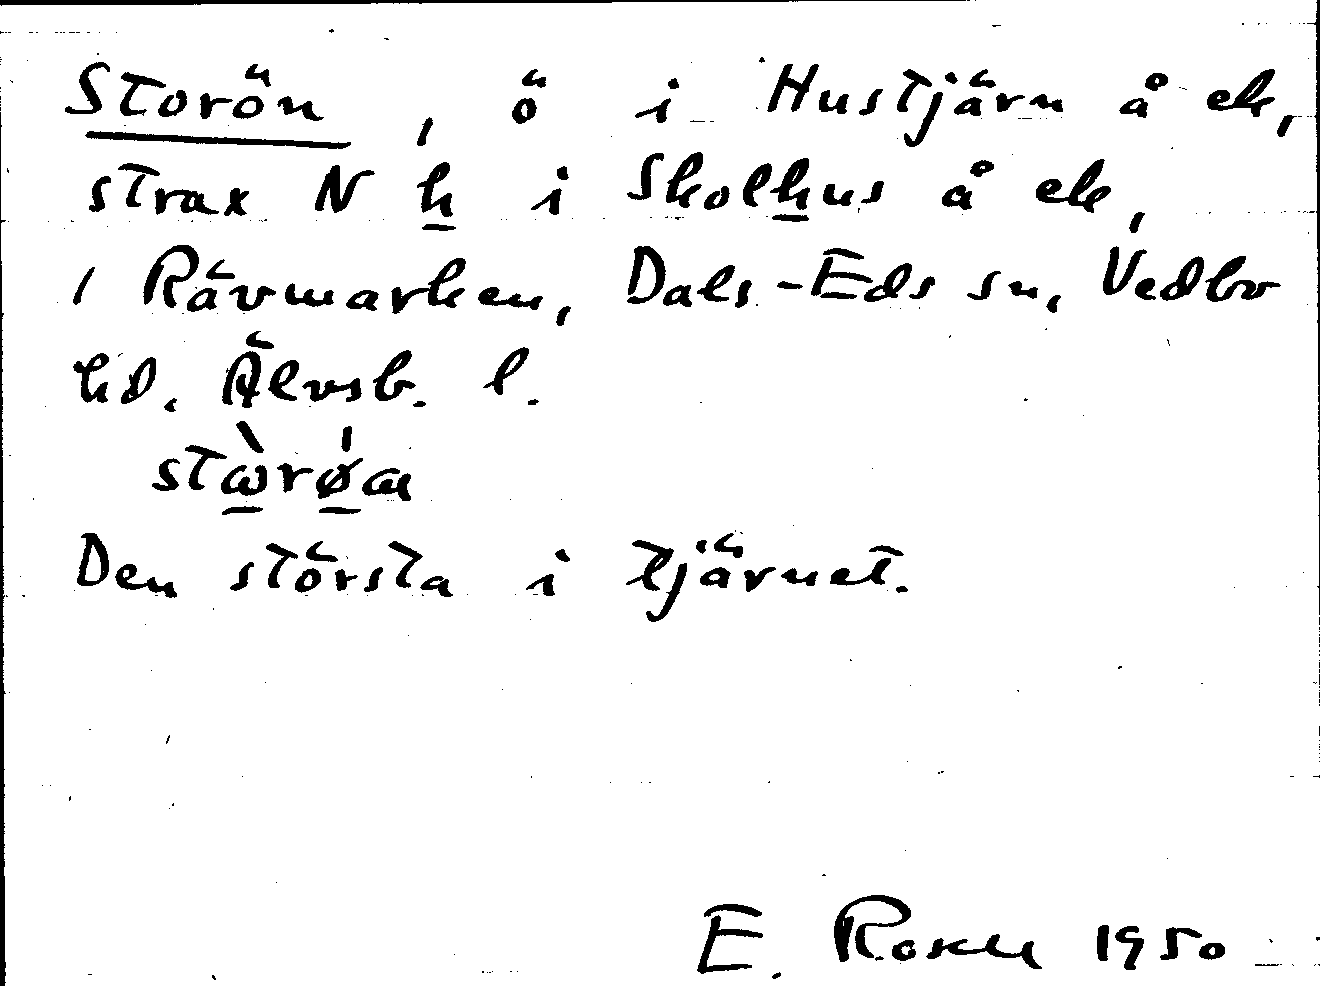 Storön, ö i Hustjärn å ek,
strax N h i Skolhus å ek,
i Rävmarken, Dals-Eds sn, Vedbo
hd. Älvsb. l.
Den största i tjärnet.
E. Rosell 1950